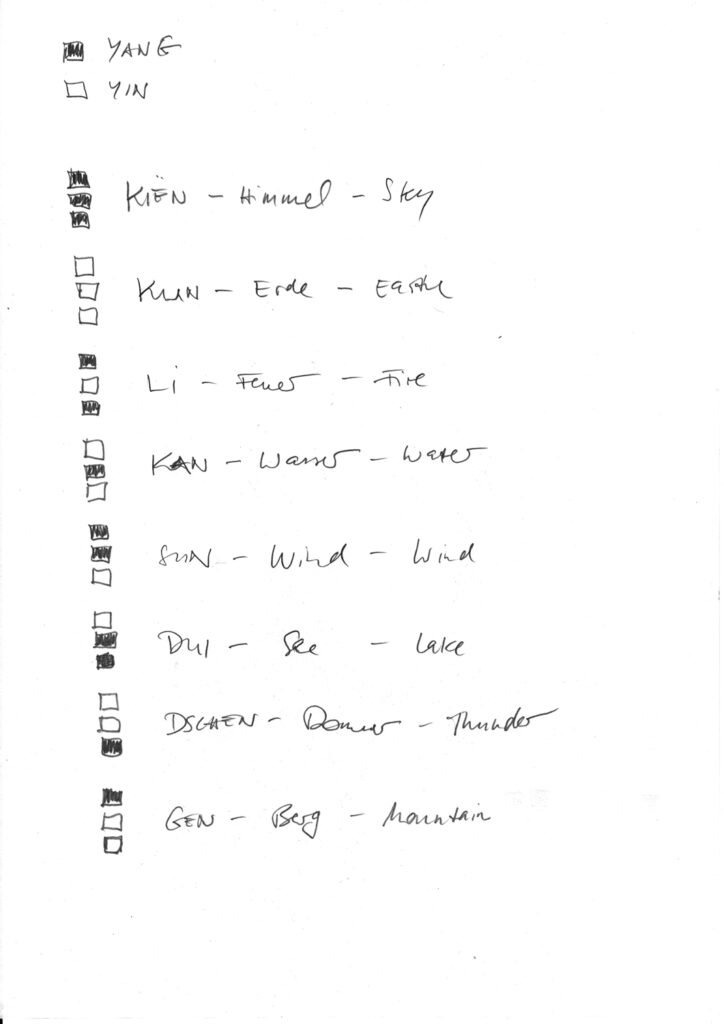 YANG
YIN
KIËN - Himmel - Sky
KUN - Erde - Earth
Li - Feuer - Fire
KAN - Wasser - Water
SUN - Wind - Wind
DUI - See - Lake
DSCHEN - Donner - Thunder
GEN - Berg - Mountain